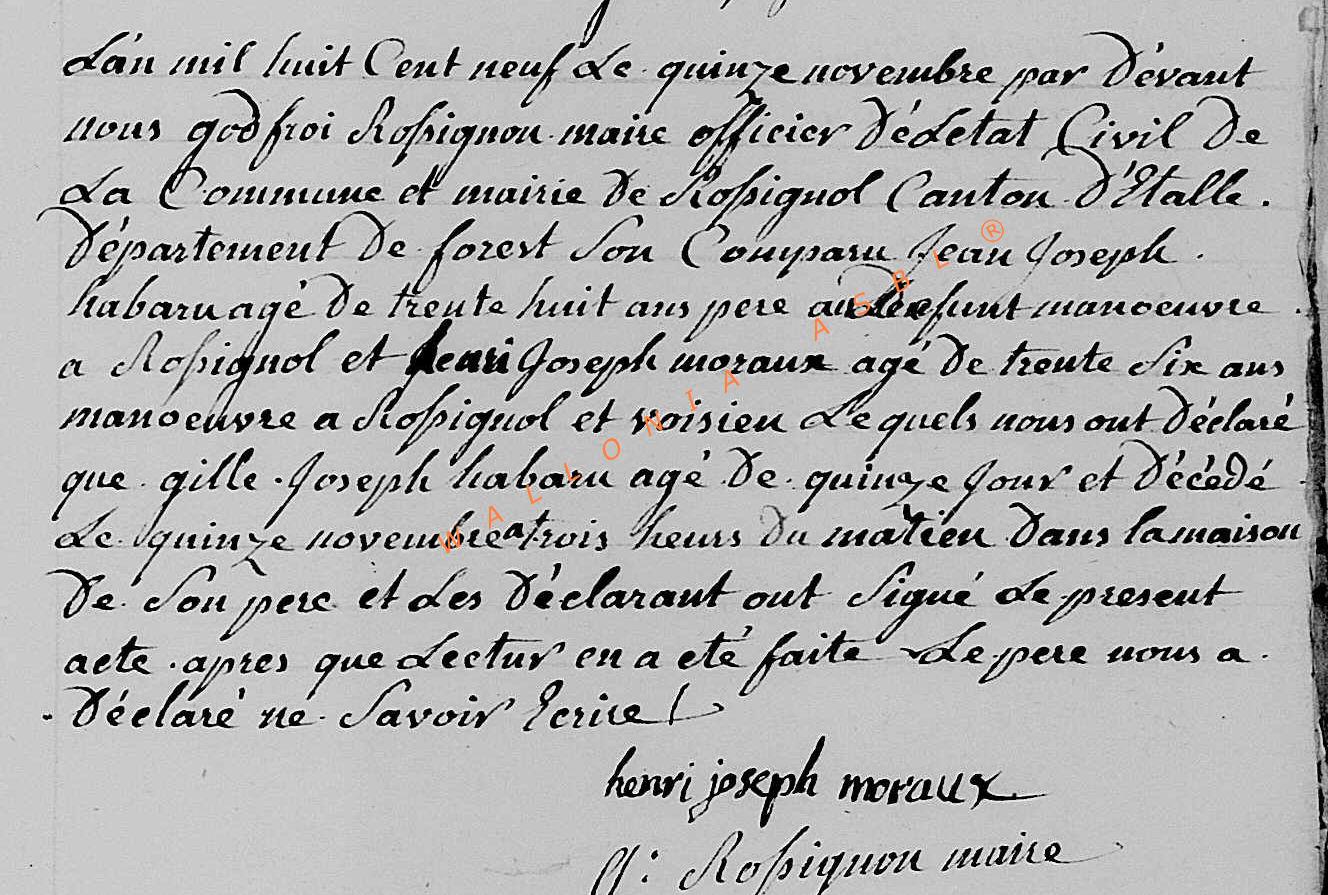 L'an mil huit Cent neuf Le quinze novembre par Dévant
nous godfroi Rossignon maire officier Dé Letat Civil De
La Commune et mairie De Rossignol Canton D'Etalle.
Département De forest Son Comparu Jean Joseph.
habaru agé De trente huit ans pere au défunt manoeuvre.
a Rossignol et henri Joseph moraux agé De trente Six ans
manoeuvre a Rossignol et voisien Lequels nous ont Déclaré
que gille Joseph habaru agé De quinze Jour et Décédé
Le quinze novembre a trois heurs Du matien Dans la maison
De Son pere et Les Déclarant ont Signé Le present
acte apres que Lectur en a eté faite Le pere nous a
Déclaré ne Savoir Ecrire
henri joseph moraux
G: Rossignon maire
WALLONIA ASBL ®